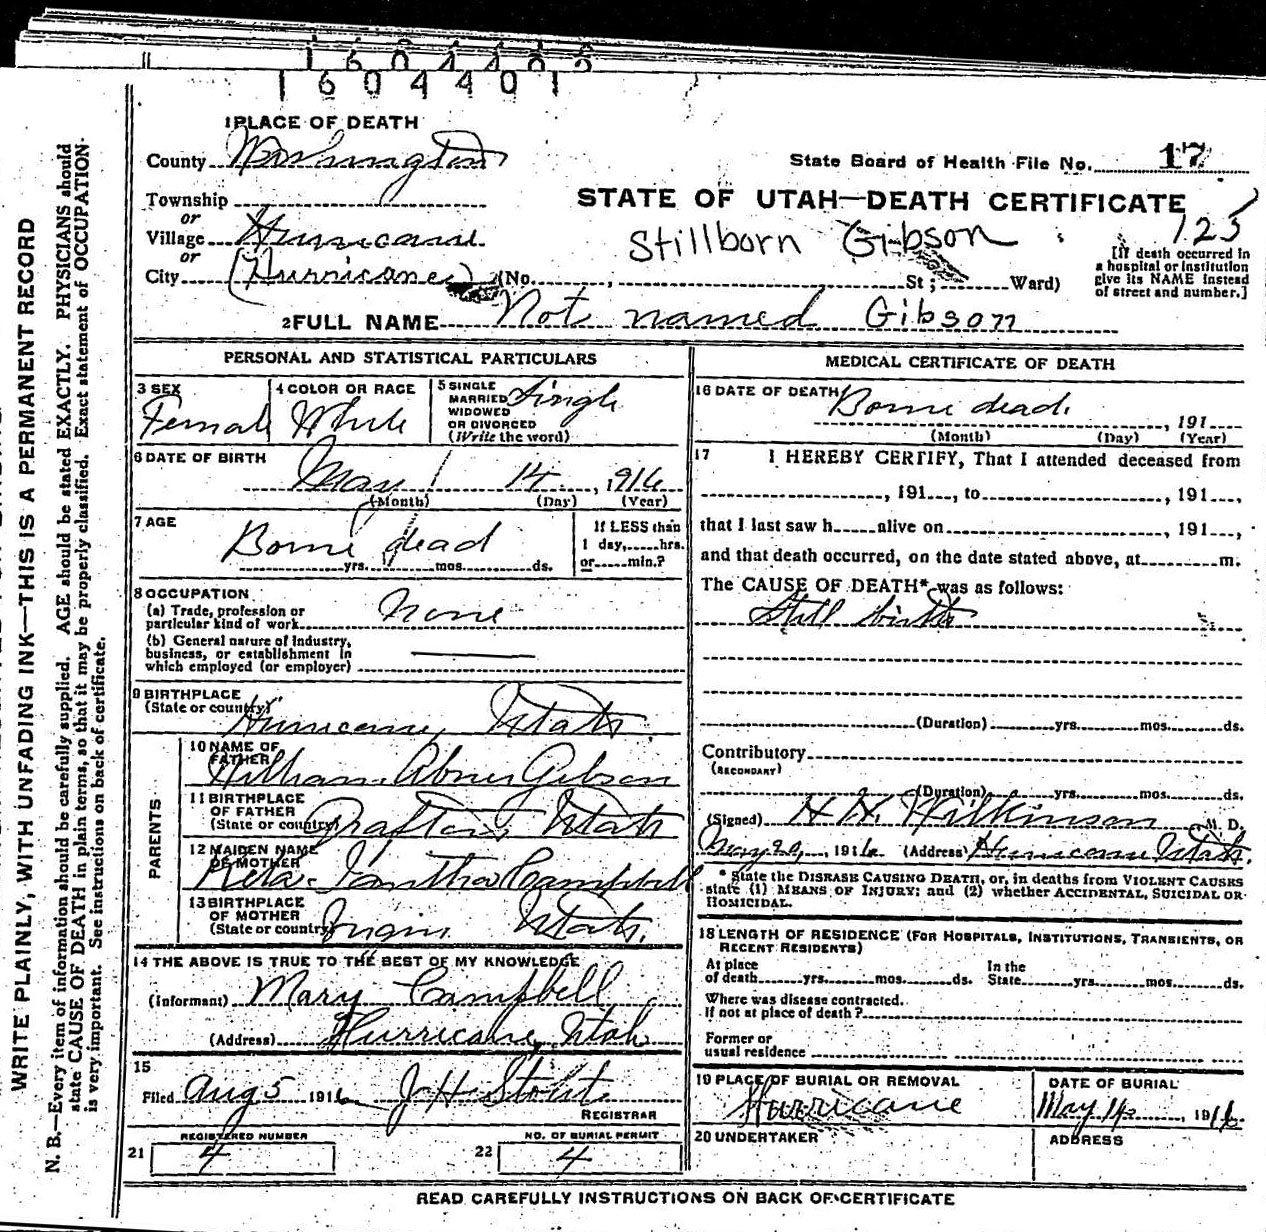 1604401
1 PLACE OF DEATH
County Washington
State Board of Health File No. 17
Township
or
STATE OF UTAH—DEATH CERTIFICATE
125
Village Hurricane
Stillborn Gibson
or
City (Hurricane) (No. , St ; Ward)
[If death occurred in
a hospital or institution
give its NAME instead
of street and number.]
2 FULL NAME Not named Gibson
PERSONAL AND STATISTICAL PARTICULARS
3 SEX
Female
4 COLOR OR RACE
White
5 SINGLE
MARRIED
WIDOWED
OR DIVORCED
(Write the word)
Single
6 DATE OF BIRTH
May 14, 1916
(Month) (Day) (Year)
7 AGE
Borne dead
yrs. mos. ds.
If LESS than
1 day, hrs.
or min.?
8 OCCUPATION
(a) Trade, profession or
particular kind of work None
(b) General nature of industry,
business, or establishment in
which employed (or employer)
9 BIRTHPLACE
(State or country)
Hurricane, Utah
PARENTS
10 NAME OF
FATHER
William Abner Gibson
11 BIRTHPLACE
OF FATHER
(State or country)
Grafton, Utah
12 MAIDEN NAME
OF MOTHER
Campbell
13 BIRTHPLACE
OF MOTHER
(State or country)
Virgin Utah.
14 THE ABOVE IS TRUE TO THE BEST OF MY KNOWLEDGE
(Informant) Mary Campbell
(Address) Hurricane, Utah
15
Filed Aug 5 1916 J H Stout
REGISTRAR
REGISTERED NUMBER
21 4
NO. OF BURIAL PERMIT
22 4
MEDICAL CERTIFICATE OF DEATH
16 DATE OF DEATH
Borne dead. , 191
(Month) (Day) (Year)
17 I HEREBY CERTIFY, That I attended deceased from
, 191 , to , 191 ,
that I last saw h alive on , 191 ,
and that death occurred, on the date stated above, at m.
The CAUSE OF DEATH* was as follows:
Still birth
(Duration) yrs. mos. ds.
Contributory
(SECONDARY)
(Duration) yrs. mos. ds.
(Signed) H H. Wilkinson M. D.
, 1916 (Address) Hurricane Utah.
* State the DISEASE CAUSING DEATH, or, in deaths from VIOLENT CAUSES
state (1) MEANS OF INJURY; and (2) whether ACCIDENTAL, SUICIDAL OR
HOMICIDAL.
18 LENGTH OF RESIDENCE (FOR HOSPITALS, INSTITUTIONS, TRANSIENTS, OR
RECENT RESIDENTS)
At place
of death yrs. mos. ds.
In the
State yrs. mos. ds.
Where was disease contracted.
If not at place of death?
Former or
usual residence
19 PLACE OF BURIAL OR REMOVAL
Hurricane
DATE OF BURIAL
May 14, 1916
20 UNDERTAKER
ADDRESS
READ CAREFULLY INSTRUCTIONS ON BACK OF CERTIFICATE
WRITE PLAINLY, WITH UNFADING INK—THIS IS A PERMANENT RECORD
N. B.—Every item of information should be carefully supplied. AGE should be stated EXACTLY. PHYSICIANS should
state CAUSE OF DEATH in plain terms, so that it may be properly classified. Exact statement of OCCUPATION
is very important. See instructions on back of certificate.